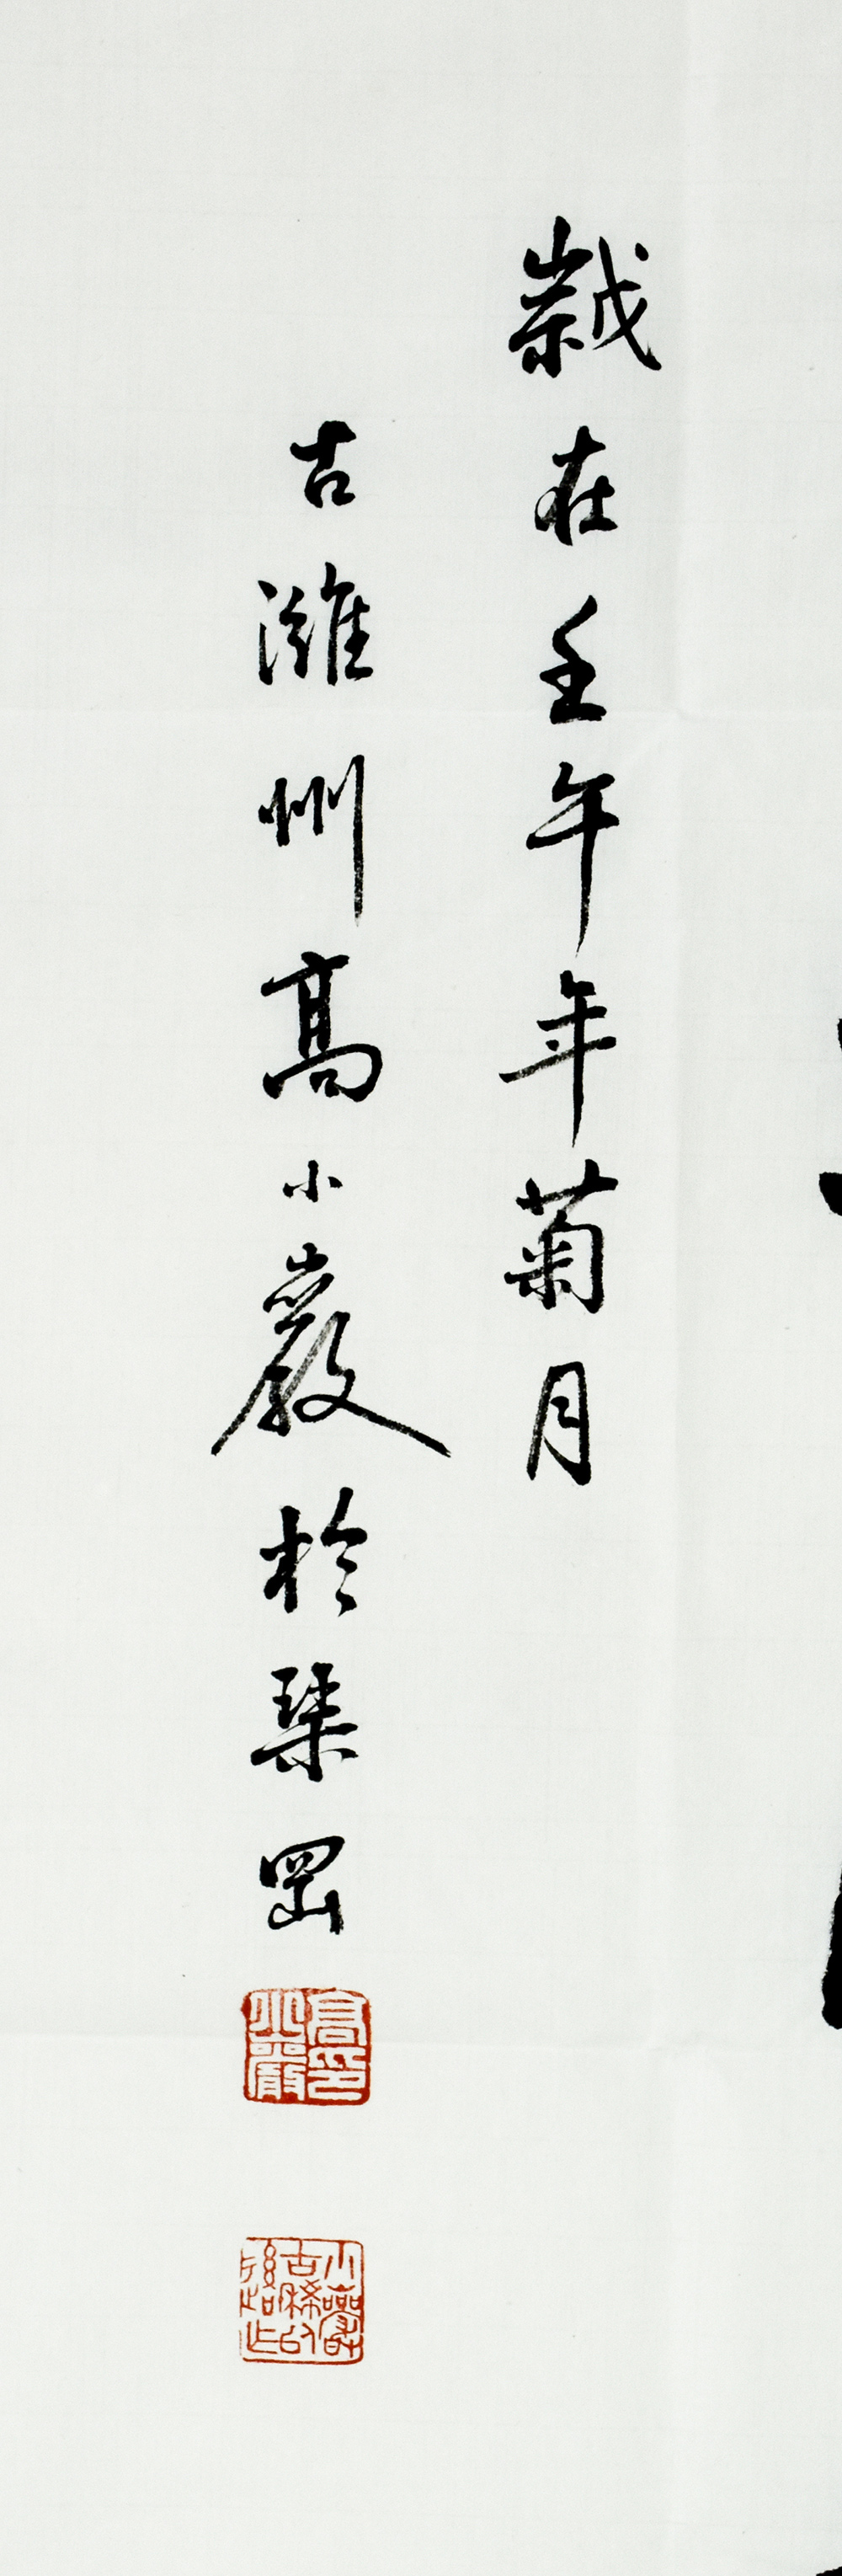 歲在壬午年菊月
古濰州高小巖於琹岡
高印小巖